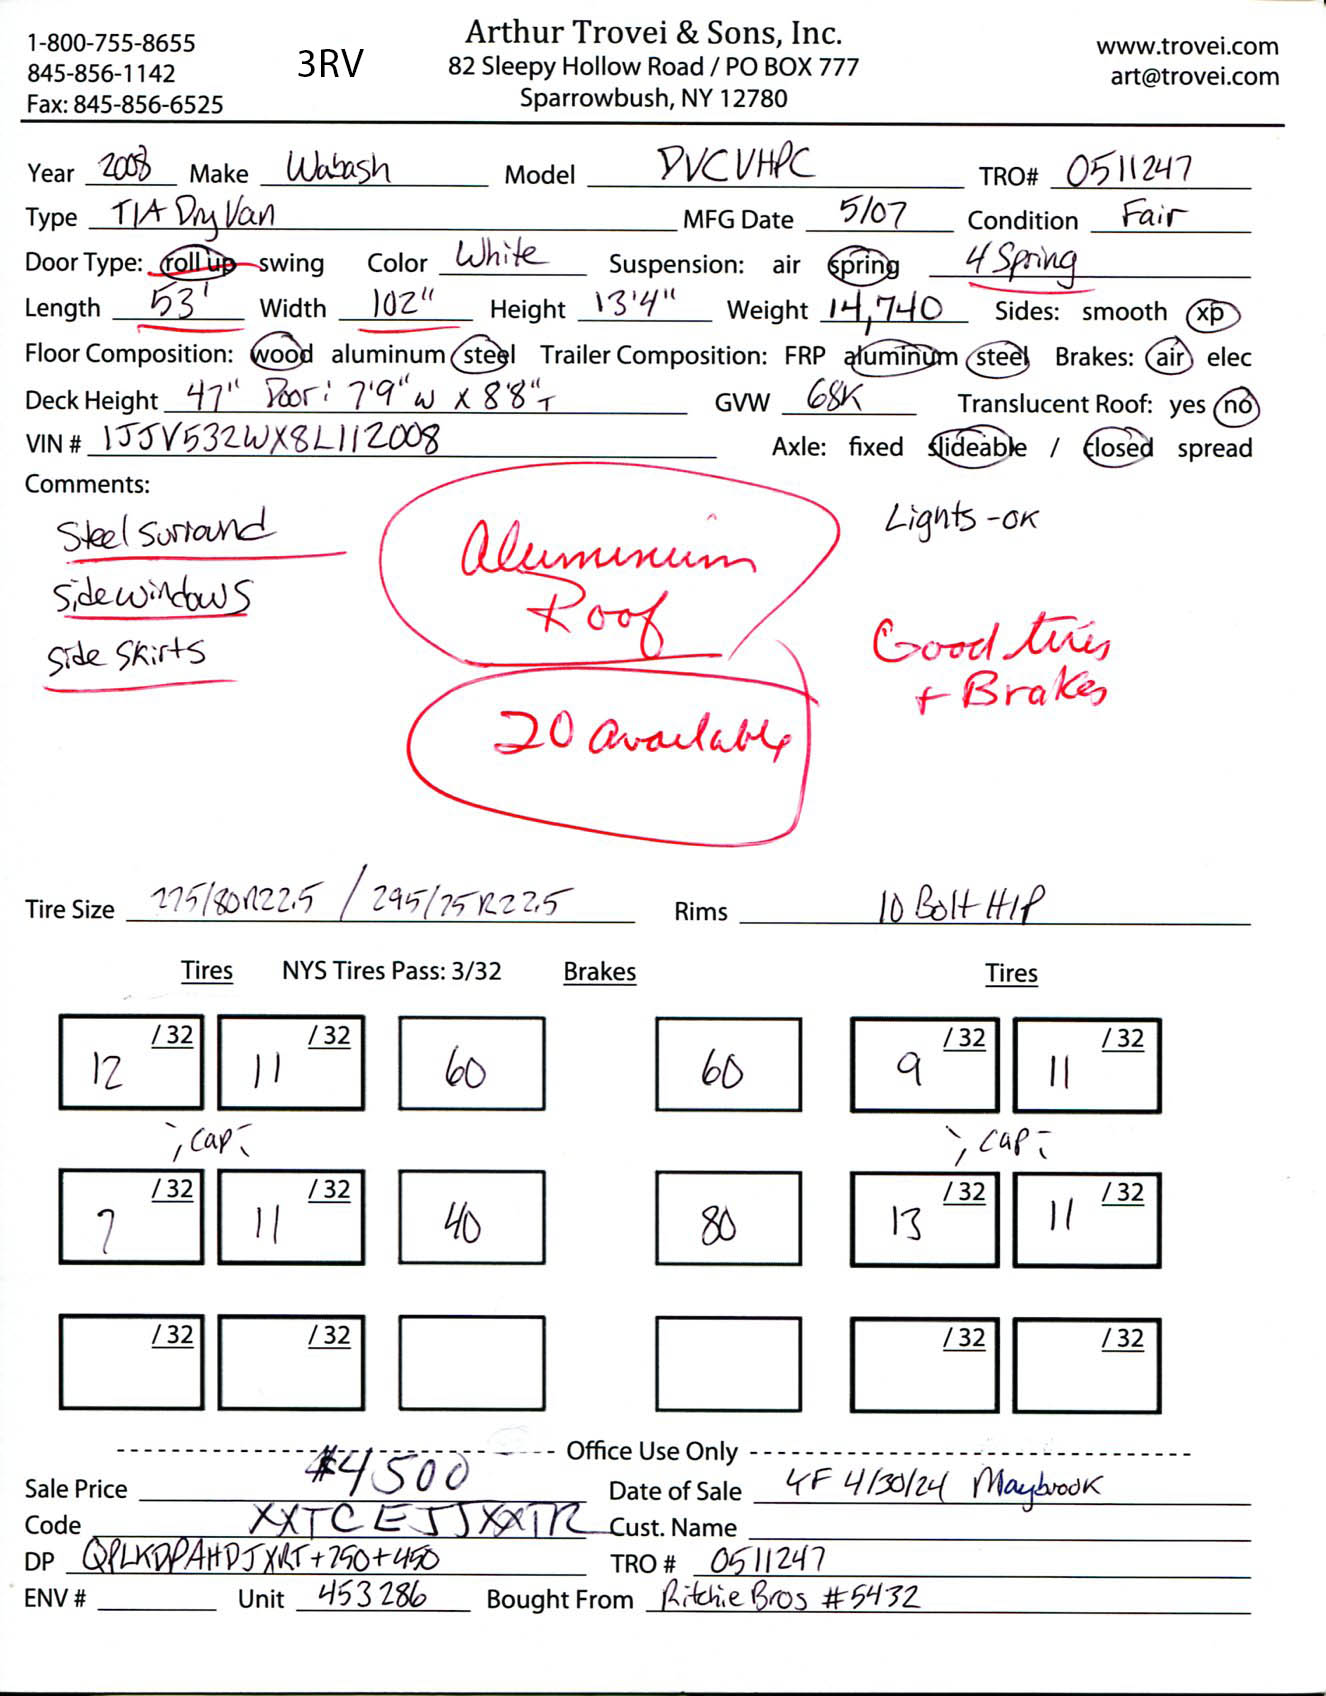 1-800-755-8655
845-856-1142
Fax: 845-856-6525
3RV
Arthur Trovei & Sons, Inc.
82 Sleepy Hollow Road / PO BOX 777
Sparrowbush, NY 12780
www.trovei.com
art@trovei.com
Year 2008 Make Wabash Model DVCVHPC TRO# 0511247
Type T/A Dry Van MFG Date 5/07 Condition Fair
Door Type: roll up swing Color White Suspension: air spring 4 Spring
Length 53' Width 102" Height 13'4" Weight 14,740 Sides: smooth xp
Floor Composition: wood aluminum steel Trailer Composition: FRP aluminum steel Brakes: air elec
Deck Height 47" Door: 7'9"w x 8'8"T GVW 68K Translucent Roof: yes no
VIN # 1JJV532WX8L112008 Axle: fixed slideable / closed spread
Comments:
Steel Surround
side windows
side skirts
Aluminum
Roof
20 available
Lights - OK
Good tires
+ Brakes
Tire Size 275/80R22.5 / 295/75R22.5 Rims 10 Bolt H/P
Tires NYS Tires Pass: 3/32 Brakes Tires
12 /32 11 /32 60 60 9 /32 11 /32
cap cap
7 /32 11 /32 40 80 13 /32 11 /32
/32 /32 /32 /32
Office Use Only
Sale Price $4500 Date of Sale 4F 4/30/24 Maybrook
Code XXTCEJJXXTR Cust. Name
DP QPLKDPAHDJXRT+250+450 TRO # 0511247
ENV # Unit 453286 Bought From Ritchie Bros #5432